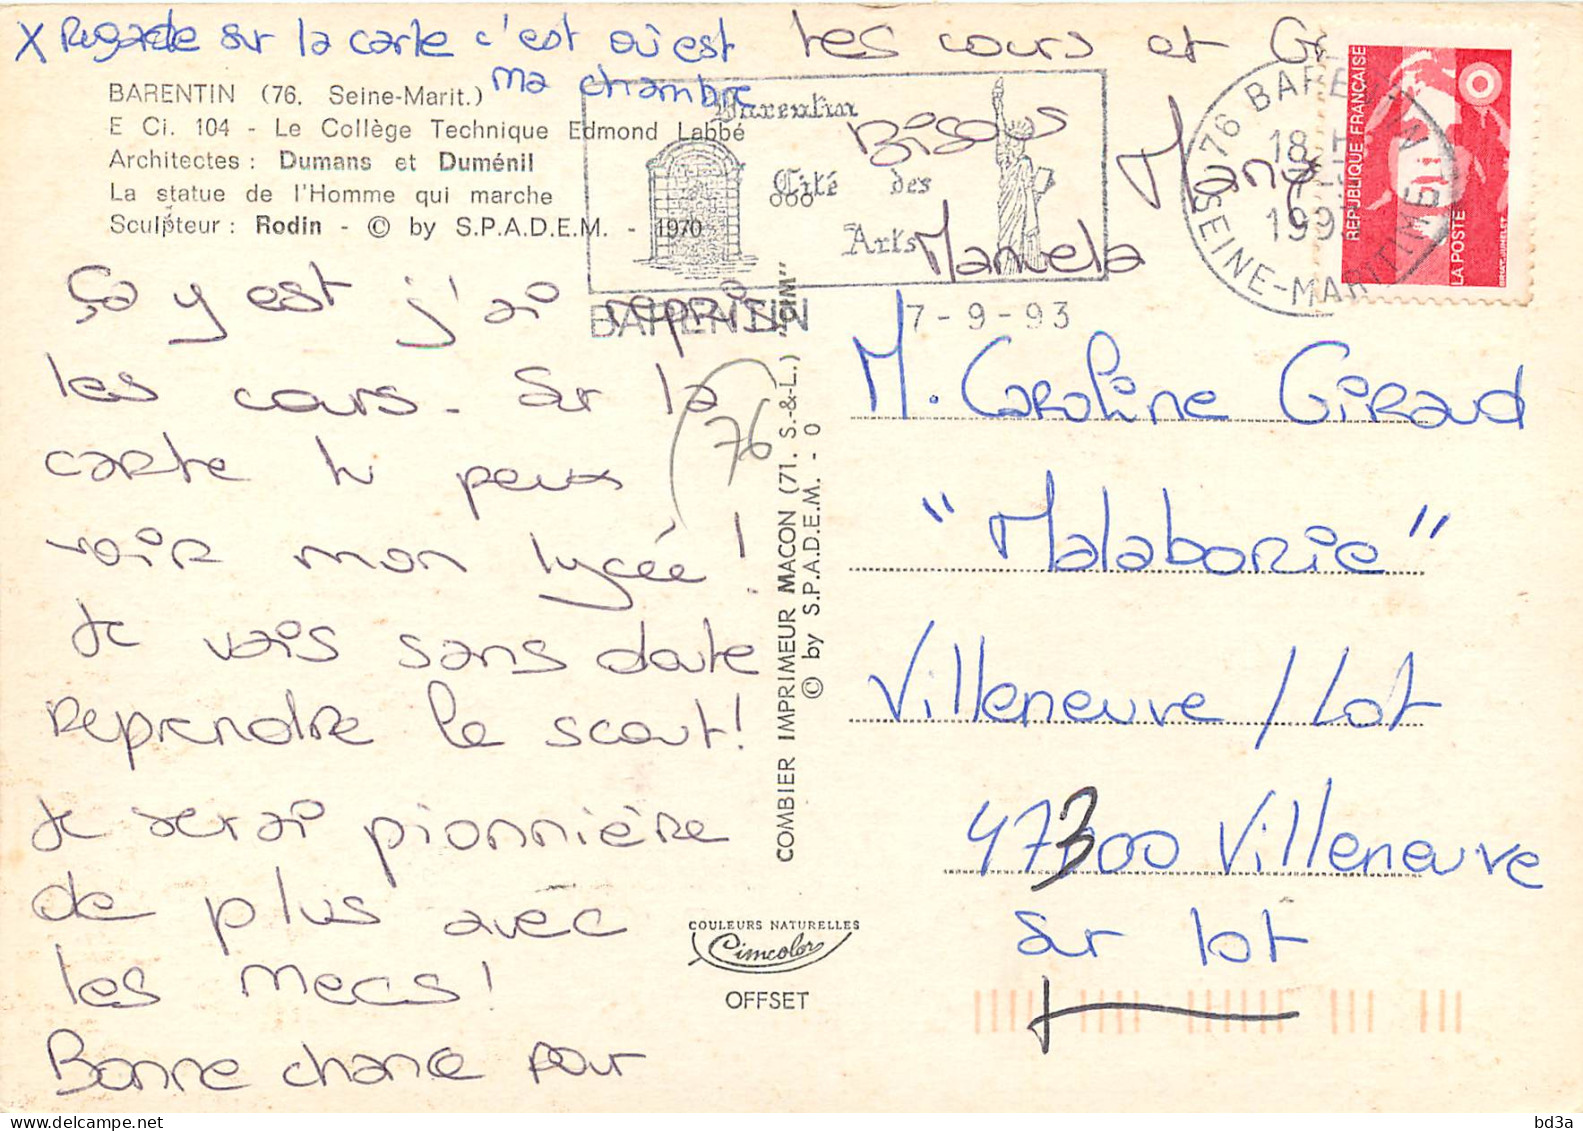 X Regarde sur la carte c'est où est
ma chambre
BARENTIN (76. Seine-Marit.)
E Ci. 104 - Le Collège Technique Edmond Labbé
Architectes : Dumans et Duménil
La statue de l'Homme qui marche
Sculpteur : Rodin - © by S.P.A.D.E.M. - 1970
Ça y est j'ai repris
les cours. Sur la
carte tu peux
voir mon lycée !
Je vais sans doute
reprendre le scout !
Je serai pionnière
de plus avec
les mecs !
Bonne chance pour
tes cours et
Bisous
Manu
Manuela
(76
Barentin
Cité des
Arts
BARENTIN
7-9-93
76 BARENTIN
18 H
7-9
199
SEINE-MARITIME
RÉPUBLIQUE FRANÇAISE
LA POSTE
COMBIER IMPRIMEUR MACON (71. S.-&-L.) "CIM"
© by S.P.A.D.E.M. - 0
M. Caroline Giraud
"Malaborie"
Villeneuve / Lot
47300 Villeneuve
sur lot
COULEURS NATURELLES
Cimcolor
OFFSET
bd3a